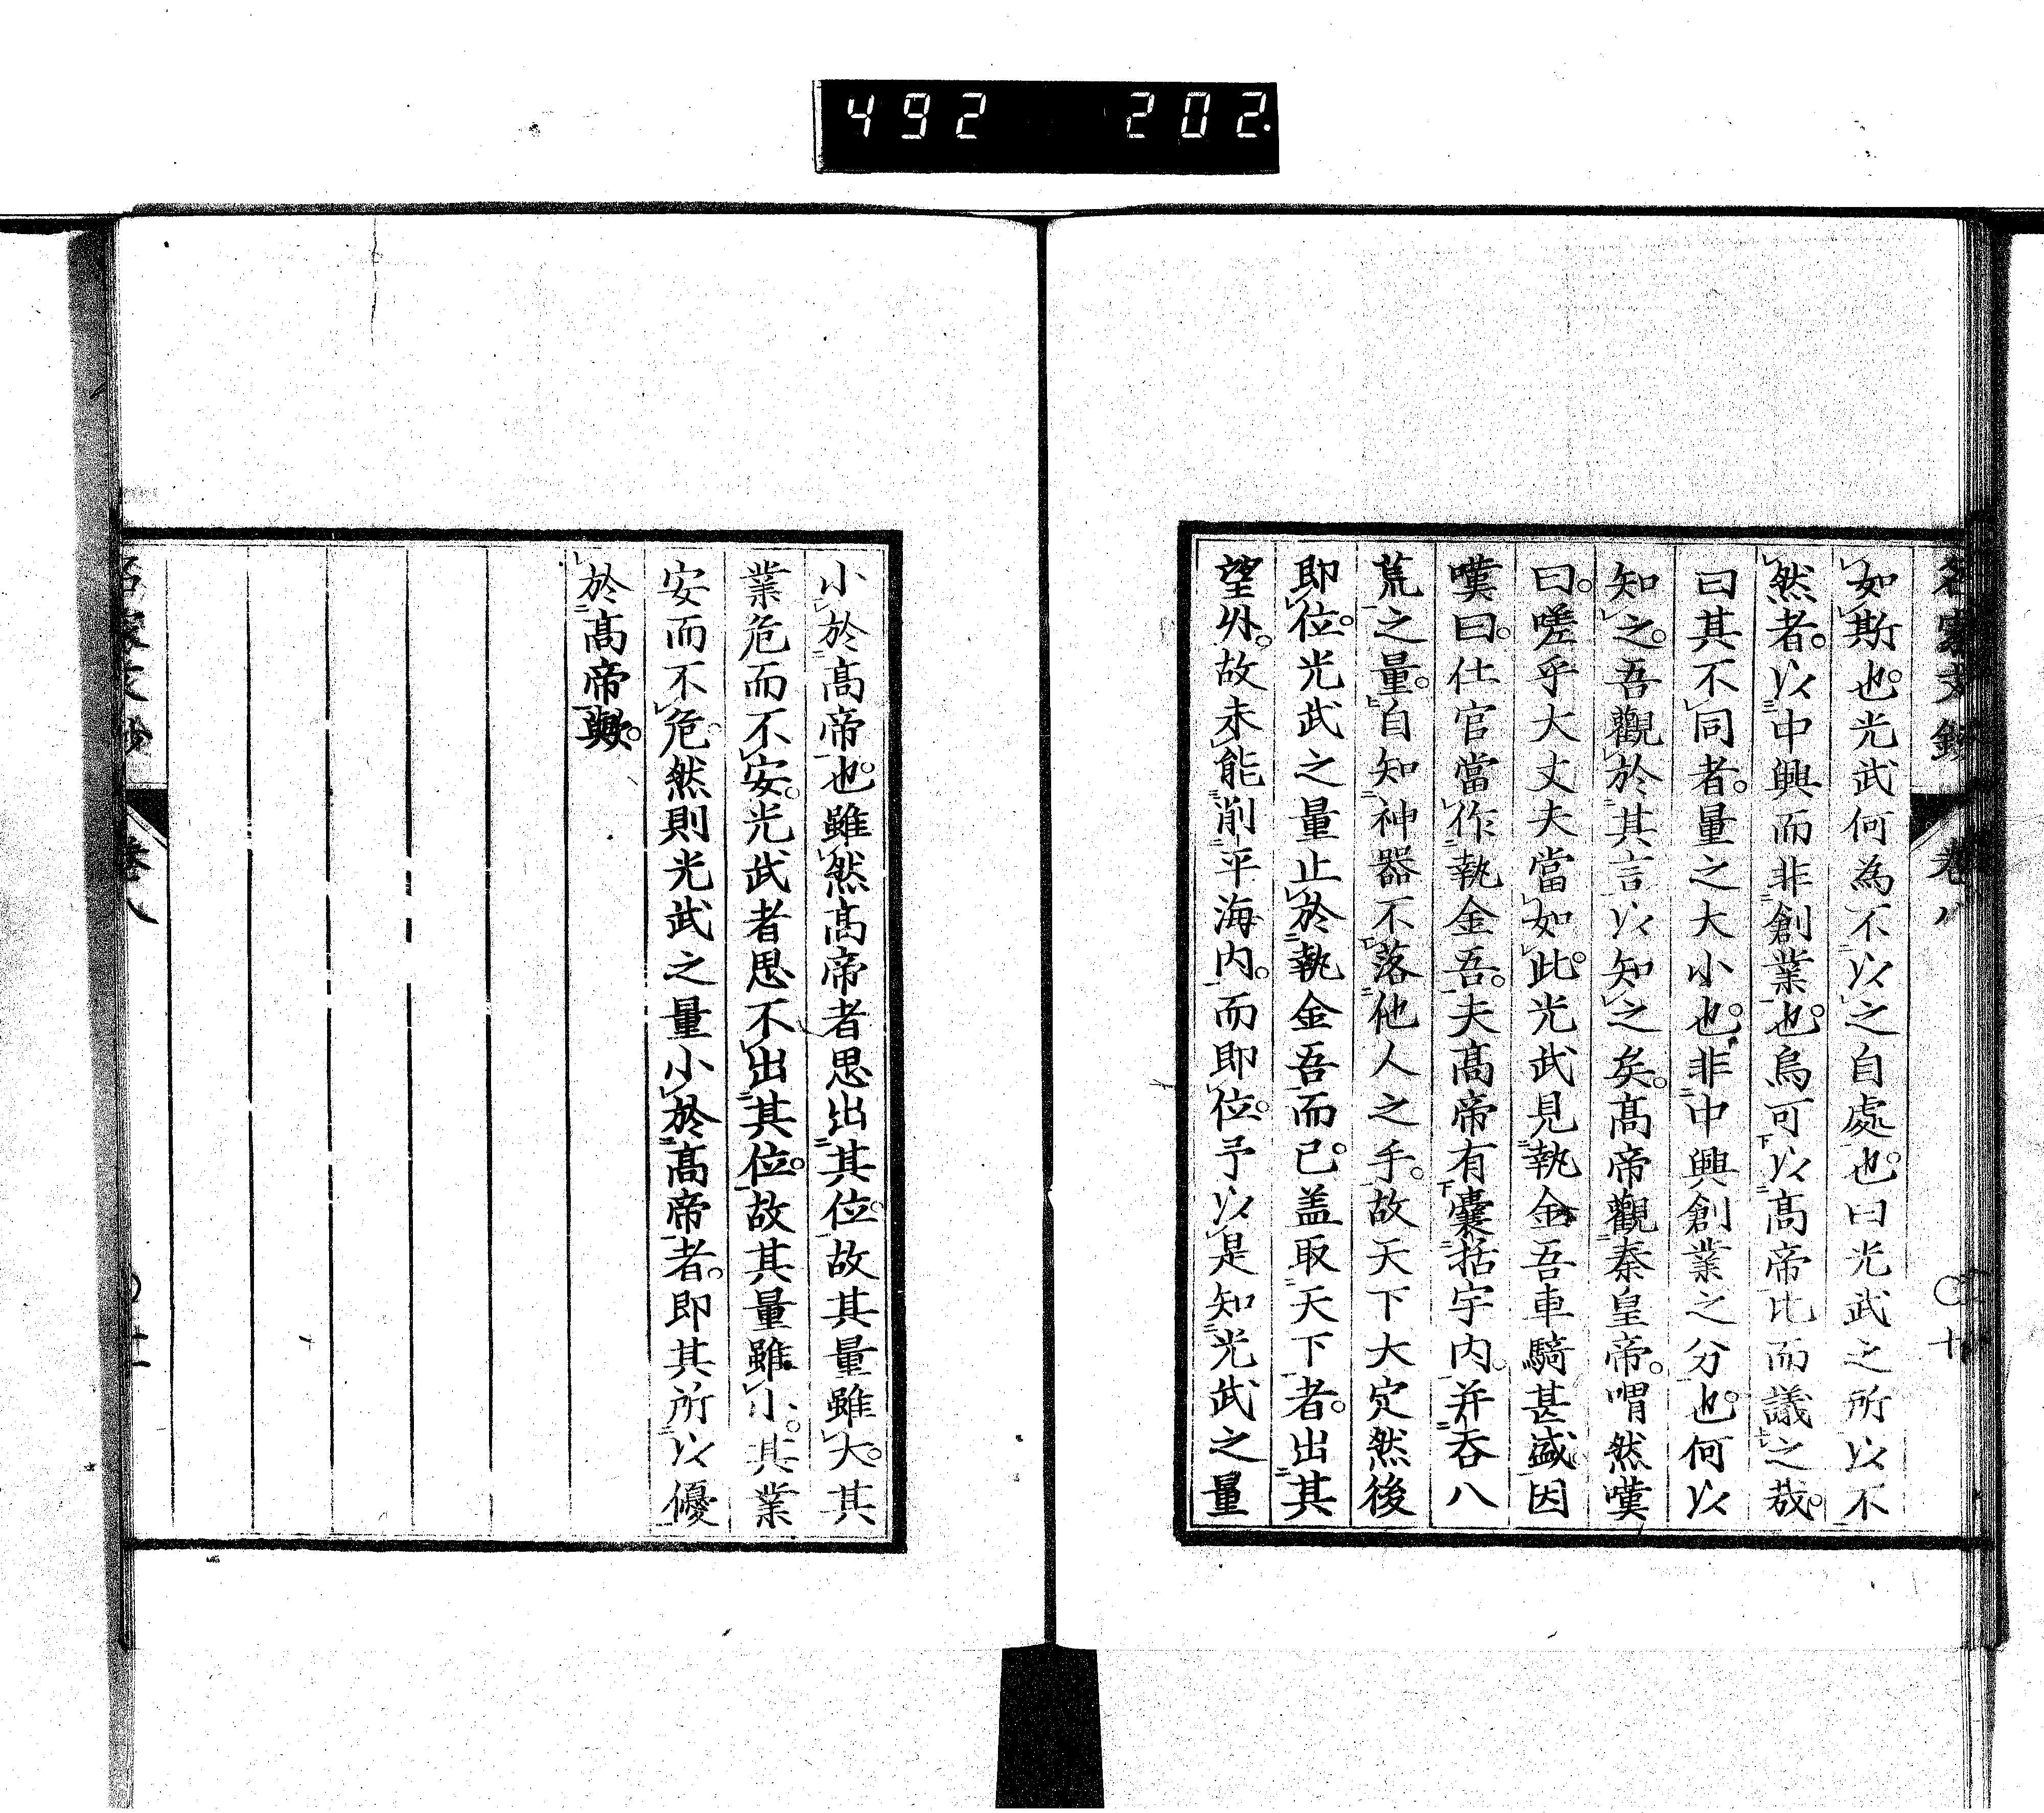 492 202.
名家文鈔 卷八 〇十
如斯也。光武何為不以之自處也。曰光武之所以不
然者。以中興而非創業也。烏可以高帝比而議之哉。
曰其不同者。量之大小也。非中興創業之分也。何以
知之。吾觀於其言以知之矣。高帝觀秦皇帝。喟然嘆
曰。嗟乎大丈夫當如此。光武見執金吾車騎甚盛。因
嘆曰。仕官當作執金吾。夫高帝有囊括宇内。并吞八
荒之量。自知神器不落他人之手。故天下大定然後
即位。光武之量止於執金吾而已。盖取天下者。出其
望外。故未能削平海内。而即位。予以是知光武之量
小於高帝也。雖然高帝者思出其位。故其量雖大。其
業危而不安。光武者思不出其位。故其量雖小。其業
安而不危。然則光武之量小於高帝者。即其所以優
於高帝歟。
名家文鈔 卷八